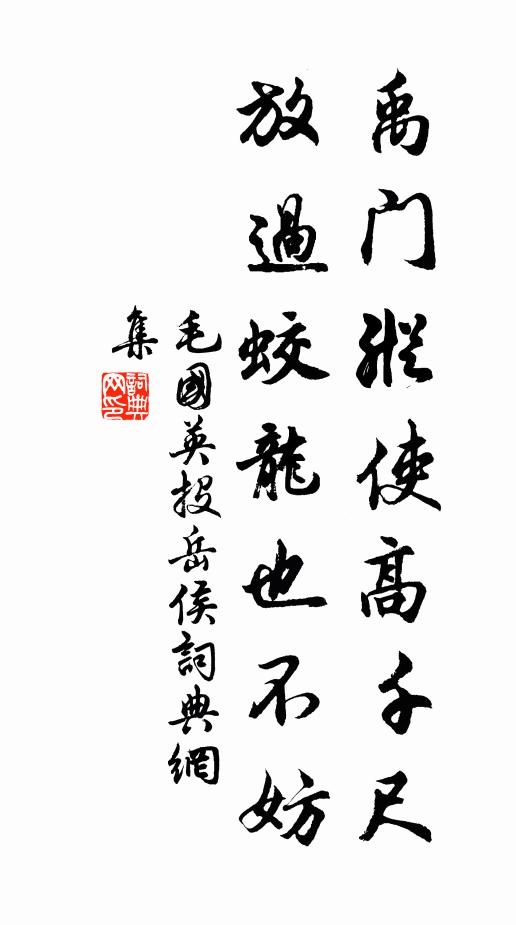 禹門縱使高千尺
放過蛟龍也不妨
毛國英投岳侯詞典網
集
詞典网印